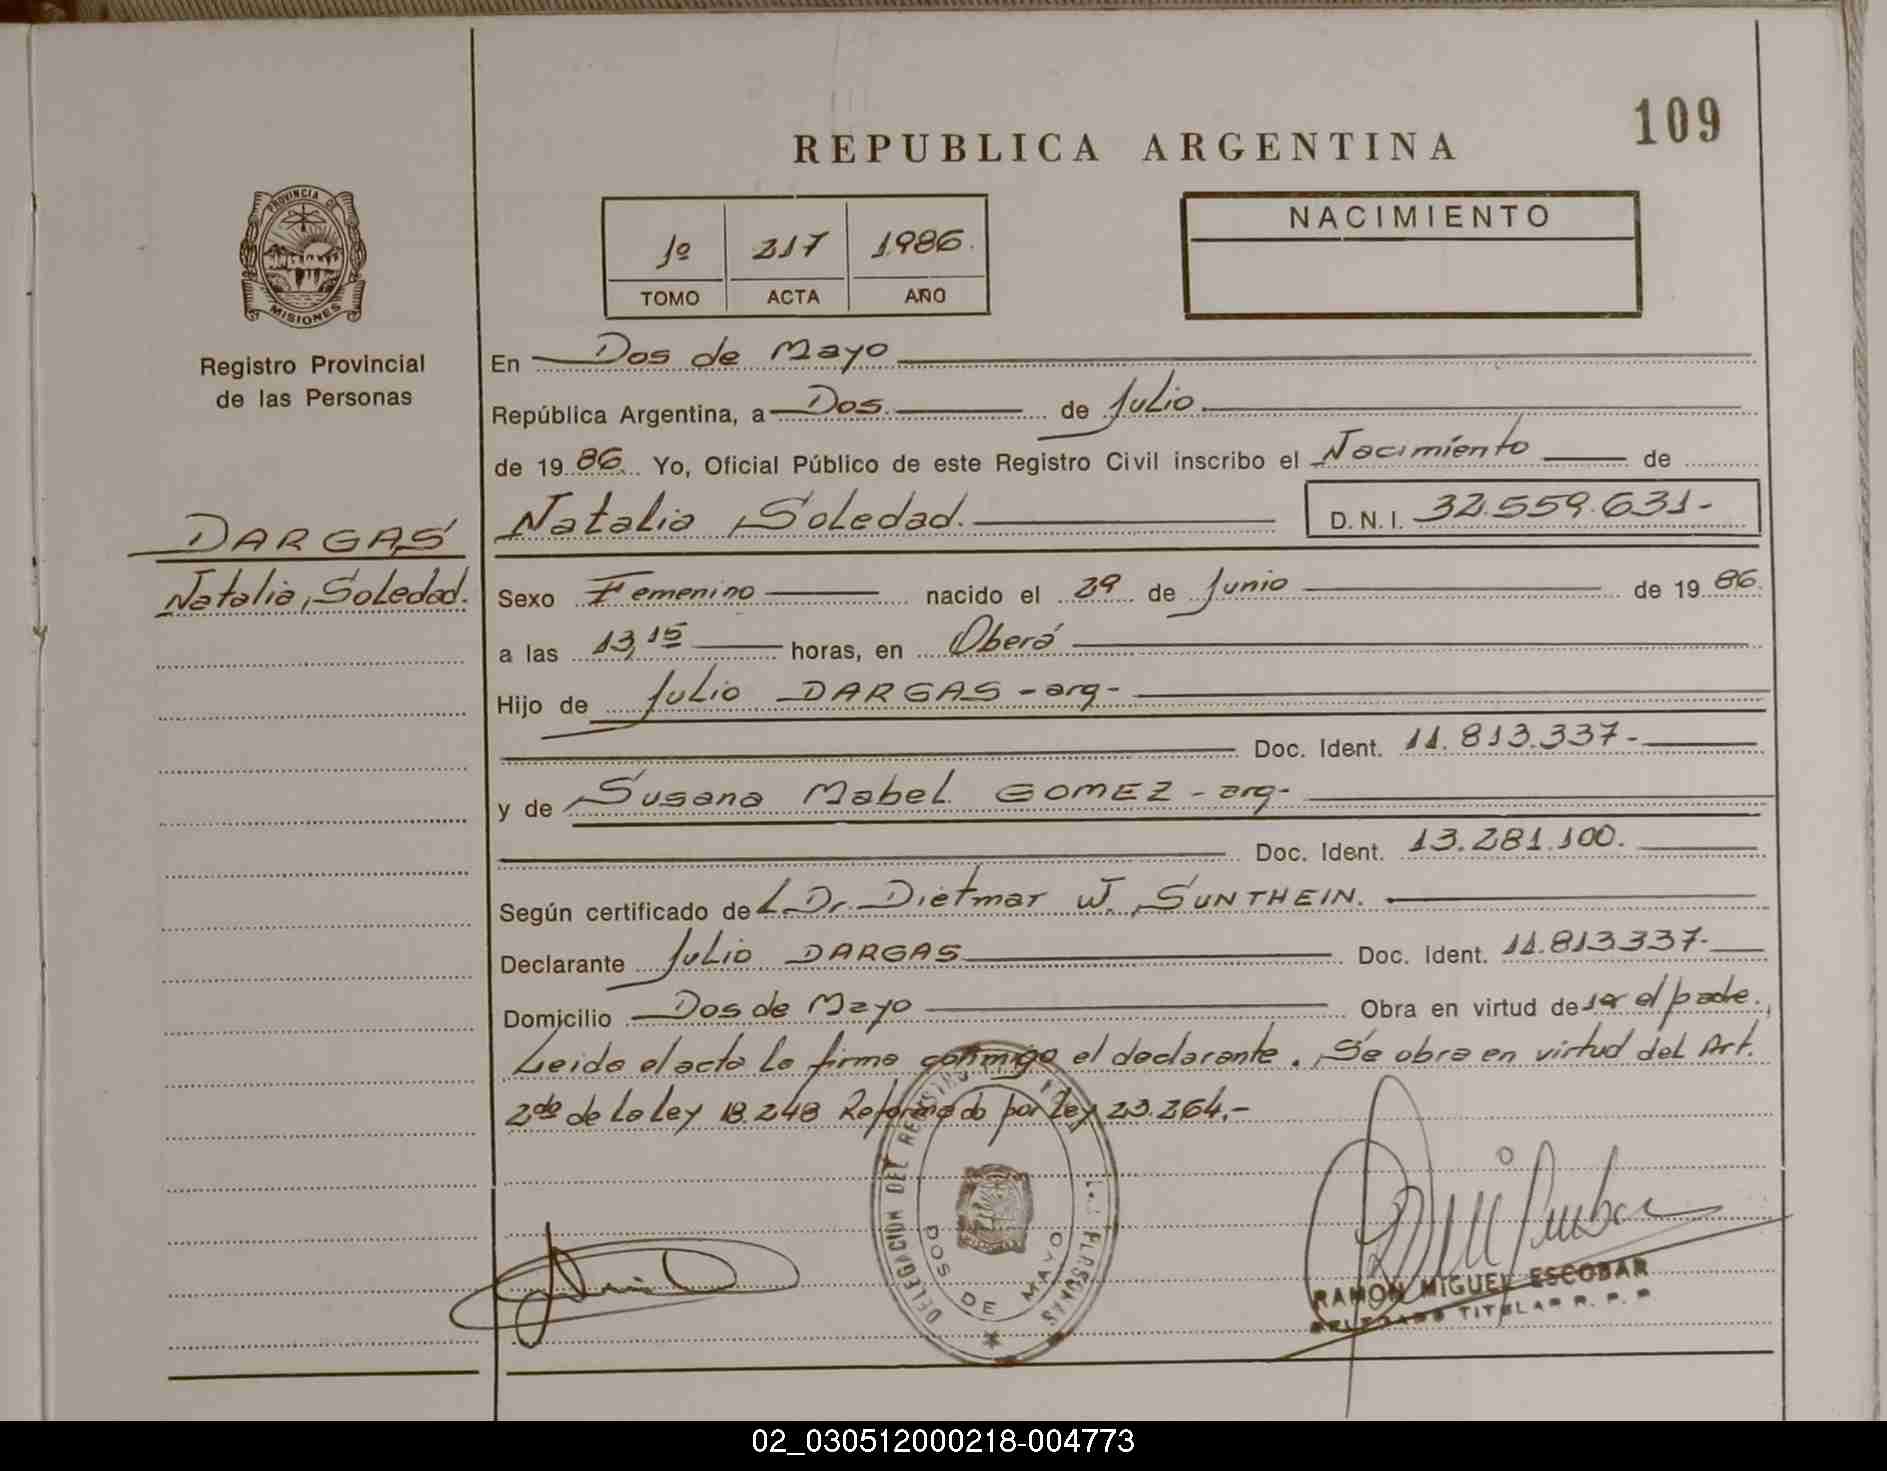 109
REPUBLICA ARGENTINA
PROVINCIA DE
MISIONES
Registro Provincial
de las Personas
1º 217 1986.
TOMO ACTA AÑO
NACIMIENTO
En Dos de Mayo
República Argentina, a Dos. de Julio
de 19 86 Yo, Oficial Público de este Registro Civil inscribo el Nacimiento de
DARGAS
Natalia Soledad.
Natalia Soledad.
D. N. I. 32.559.631-
Sexo Femenino nacido el 29 de Junio de 19 86.
a las 13,15 horas, en Oberá
Hijo de Julio DARGAS - arg-
Doc. Ident. 11.813.337-
y de Susana Mabel GOMEZ - arg-
Doc. Ident. 13.281.100.
Según certificado de L. Dr. Dietmar W. SUNTHEIN.
Declarante Julio DARGAS Doc. Ident. 11.813337-
Domicilio Dos de Mayo Obra en virtud de ser el padre.
Leida el acta la firma conmigo el declarante. Se obra en virtud del Art.
2do de la Ley 18.248 Reformado por Ley 23.264.-
DELEGACION DEL REGISTRO LAS PERSONAS
DOS DE MAYO
RAMON MIGUEL ESCOBAR
DELEGADO TITULAR R. P. P.
02_030512000218-004773